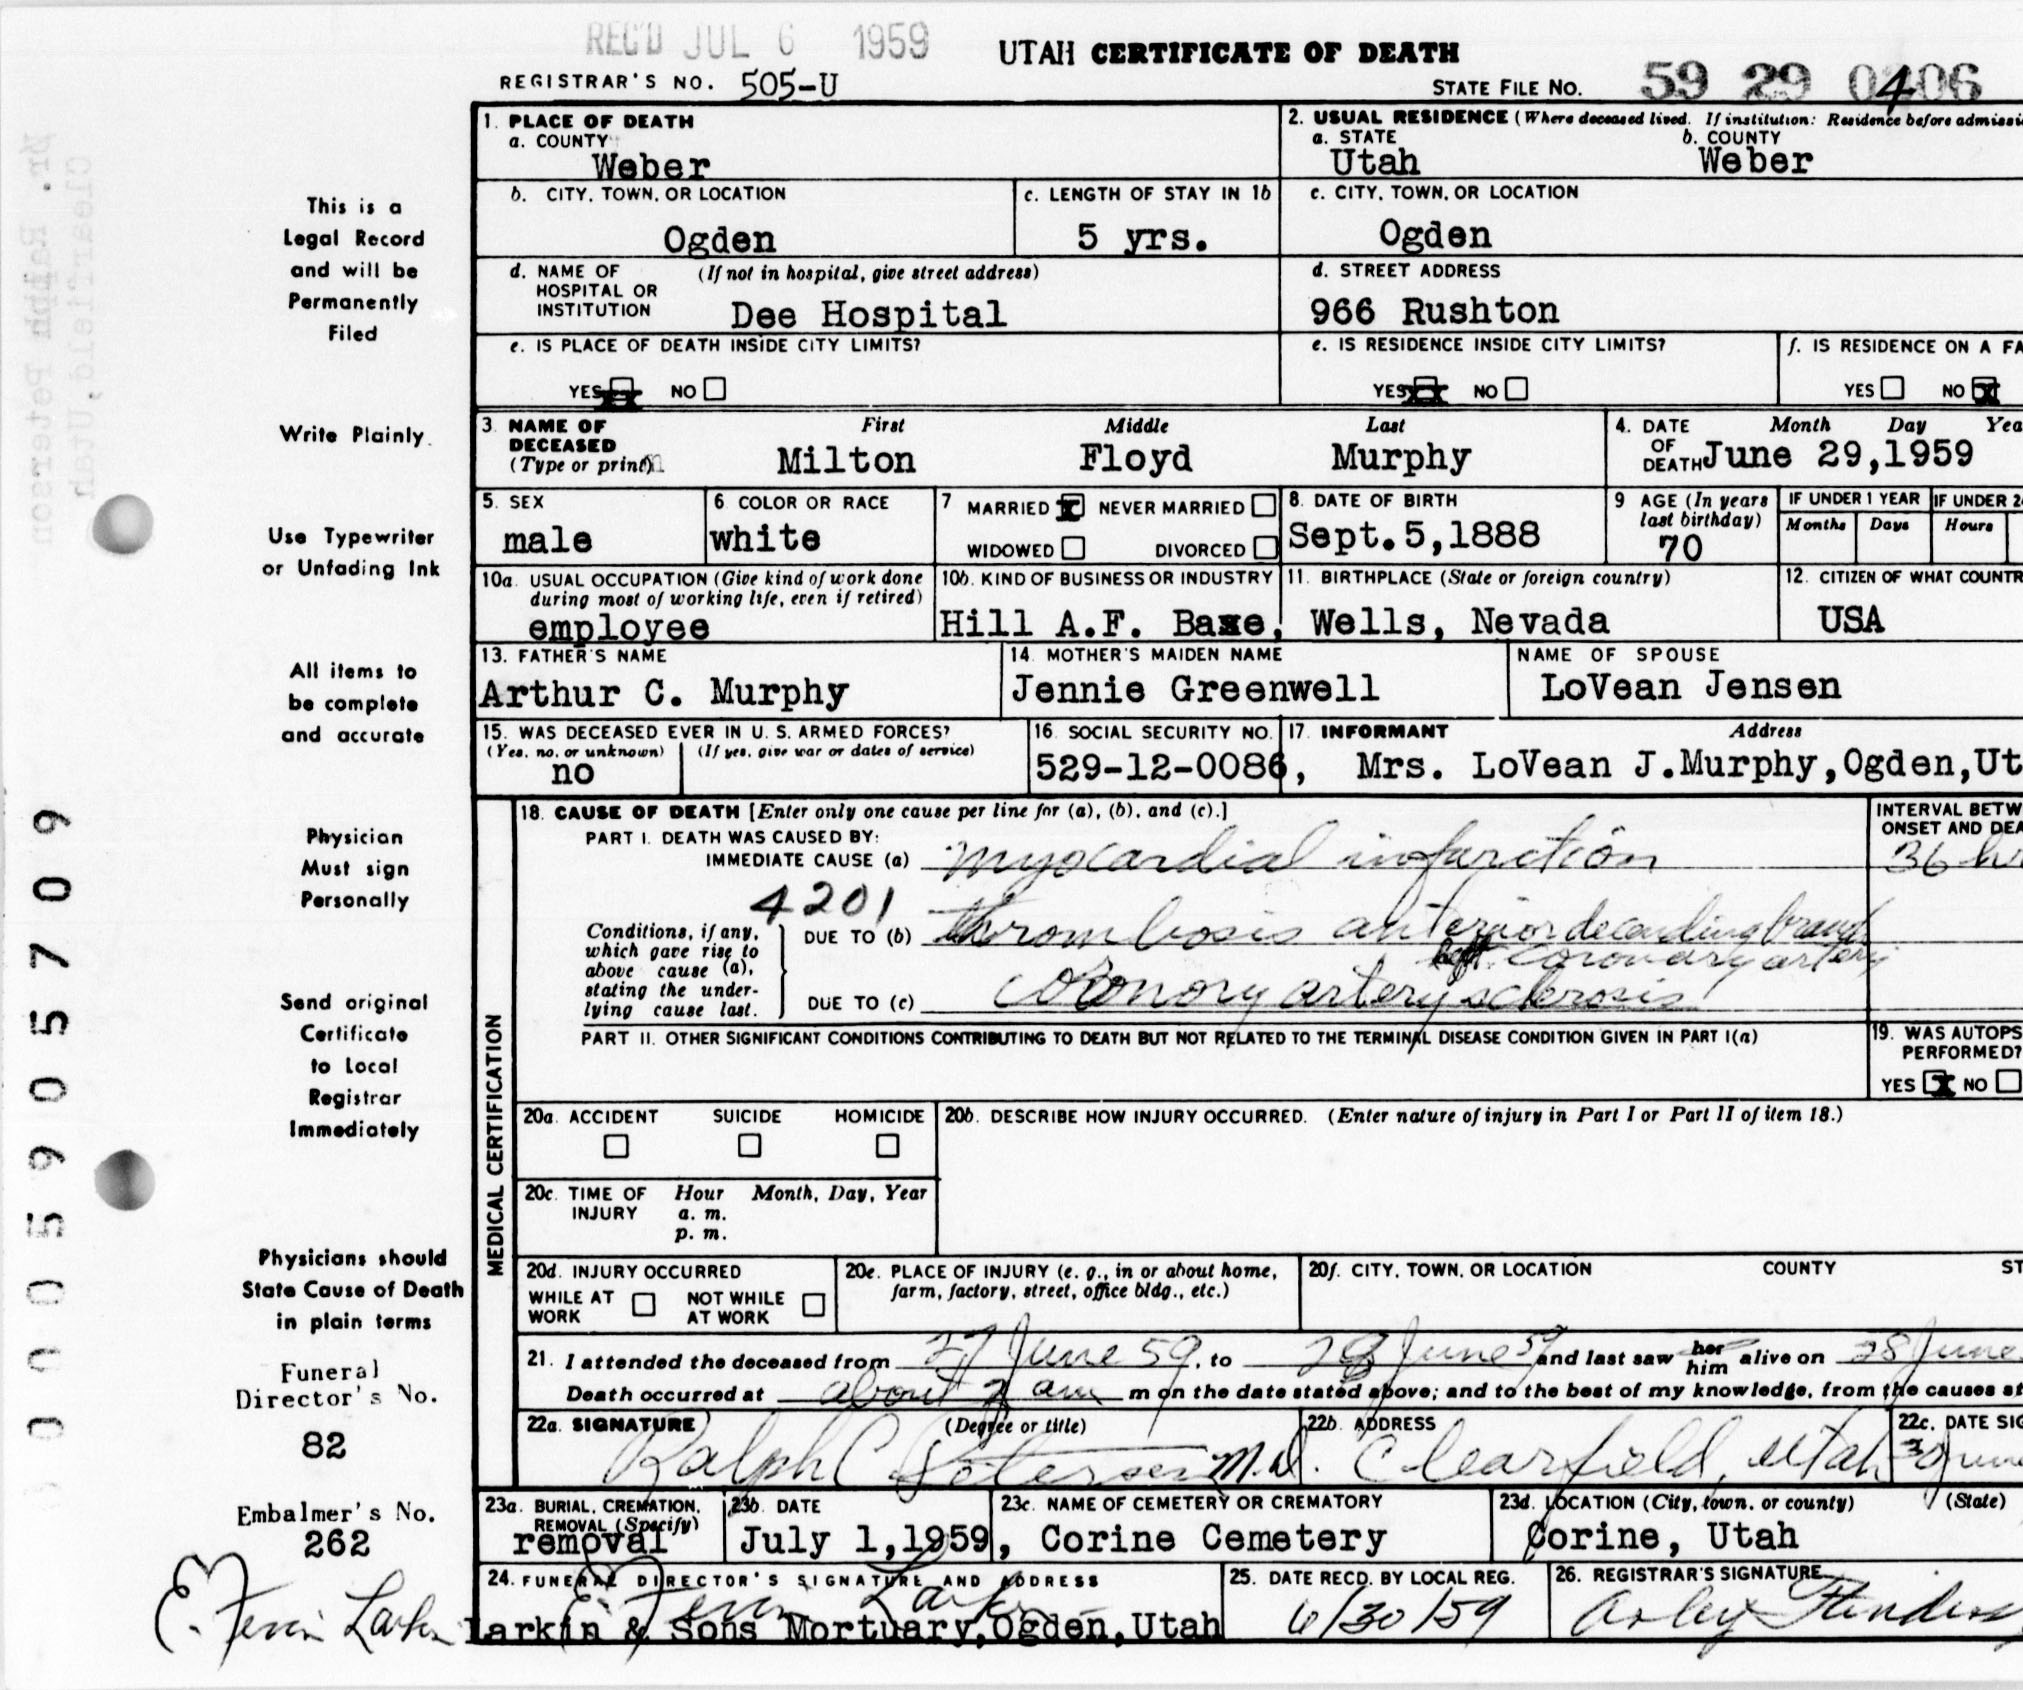 REC'D JUL 6 1959
UTAH CERTIFICATE OF DEATH
REGISTRAR'S NO. 505-U
STATE FILE NO. 59 29 0406
1. PLACE OF DEATH
a. COUNTY
Weber
2. USUAL RESIDENCE (Where deceased lived. If institution: Residence before admissi
a. STATE b. COUNTY
Utah Weber
b. CITY, TOWN, OR LOCATION
Ogden
c. LENGTH OF STAY IN 1b
5 yrs.
c. CITY, TOWN, OR LOCATION
Ogden
d. NAME OF HOSPITAL OR INSTITUTION (If not in hospital, give street address)
Dee Hospital
d. STREET ADDRESS
966 Rushton
e. IS PLACE OF DEATH INSIDE CITY LIMITS?
YES NO
e. IS RESIDENCE INSIDE CITY LIMITS?
YES NO
f. IS RESIDENCE ON A FA
YES NO X
3. NAME OF DECEASED (Type or print)
First Middle Last
Milton Floyd Murphy
4. DATE OF DEATH Month Day Yea
June 29,1959
5. SEX
male
6 COLOR OR RACE
white
7 MARRIED X NEVER MARRIED
WIDOWED DIVORCED
8. DATE OF BIRTH
Sept.5,1888
9 AGE (In years last birthday)
70
IF UNDER 1 YEAR
Months Days
IF UNDER 2
Hours
10a. USUAL OCCUPATION (Give kind of work done
during most of working life, even if retired)
employee
10b. KIND OF BUSINESS OR INDUSTRY
Hill A.F. Base,
11. BIRTHPLACE (State or foreign country)
Wells, Nevada
12. CITIZEN OF WHAT COUNTR
USA
13. FATHER'S NAME
Arthur C. Murphy
14. MOTHER'S MAIDEN NAME
Jennie Greenwell
NAME OF SPOUSE
LoVean Jensen
15. WAS DECEASED EVER IN U. S. ARMED FORCES?
(Yes, no, or unknown) (If yes, give war or dates of service)
no
16. SOCIAL SECURITY NO.
529-12-0086,
17. INFORMANT Address
Mrs. LoVean J.Murphy,Ogden,Ut
MEDICAL CERTIFICATION
18. CAUSE OF DEATH [Enter only one cause per line for (a), (b), and (c).]
INTERVAL BETW
ONSET AND DEA
PART I. DEATH WAS CAUSED BY:
IMMEDIATE CAUSE (a) myocardial infarction
36 hr
4201
Conditions, if any,
which gave rise to
above cause (a),
stating the under-
lying cause last.
DUE TO (b) thrombosis anterior decending branch
left coronary artery
DUE TO (c) coronory artery sclerosis
PART II. OTHER SIGNIFICANT CONDITIONS CONTRIBUTING TO DEATH BUT NOT RELATED TO THE TERMINAL DISEASE CONDITION GIVEN IN PART I(a)
19. WAS AUTOPS
PERFORMED?
YES X NO
20a. ACCIDENT SUICIDE HOMICIDE
20b. DESCRIBE HOW INJURY OCCURRED. (Enter nature of injury in Part I or Part II of item 18.)
20c. TIME OF INJURY Hour Month, Day, Year
a. m.
p. m.
20d. INJURY OCCURRED
WHILE AT WORK NOT WHILE AT WORK
20e. PLACE OF INJURY (e. g., in or about home,
farm, factory, street, office bldg., etc.)
20f. CITY, TOWN, OR LOCATION COUNTY ST
21. I attended the deceased from 27 June 59, to 28 June 59 and last saw her him alive on 28 June
Death occurred at about 2 am m on the date stated above; and to the best of my knowledge, from the causes st
22a. SIGNATURE (Degree or title)
Ralph C. Petersen M.D.
22b. ADDRESS
Clearfield, Utah
22c. DATE SIG
30 June
23a. BURIAL, CREMATION,
REMOVAL (Specify)
removal
23b. DATE
July 1,1959,
23c. NAME OF CEMETERY OR CREMATORY
Corine Cemetery
23d. LOCATION (City, town, or county) (State)
Corine, Utah
24. FUNERAL DIRECTOR'S SIGNATURE AND ADDRESS
Larkin & Sons Mortuary,Ogden,Utah
25. DATE RECD. BY LOCAL REG.
6/30/59
26. REGISTRAR'S SIGNATURE
This is a
Legal Record
and will be
Permanently
Filed
Write Plainly
Use Typewriter
or Unfading Ink
All items to
be complete
and accurate
Physician
Must sign
Personally
Send original
Certificate
to Local
Registrar
Immediately
Physicians should
State Cause of Death
in plain terms
Funeral
Director's No.
82
Embalmer's No.
262
E. Ferrin Larkin
Dr. Ralph Peterson
Clearfield,Utah